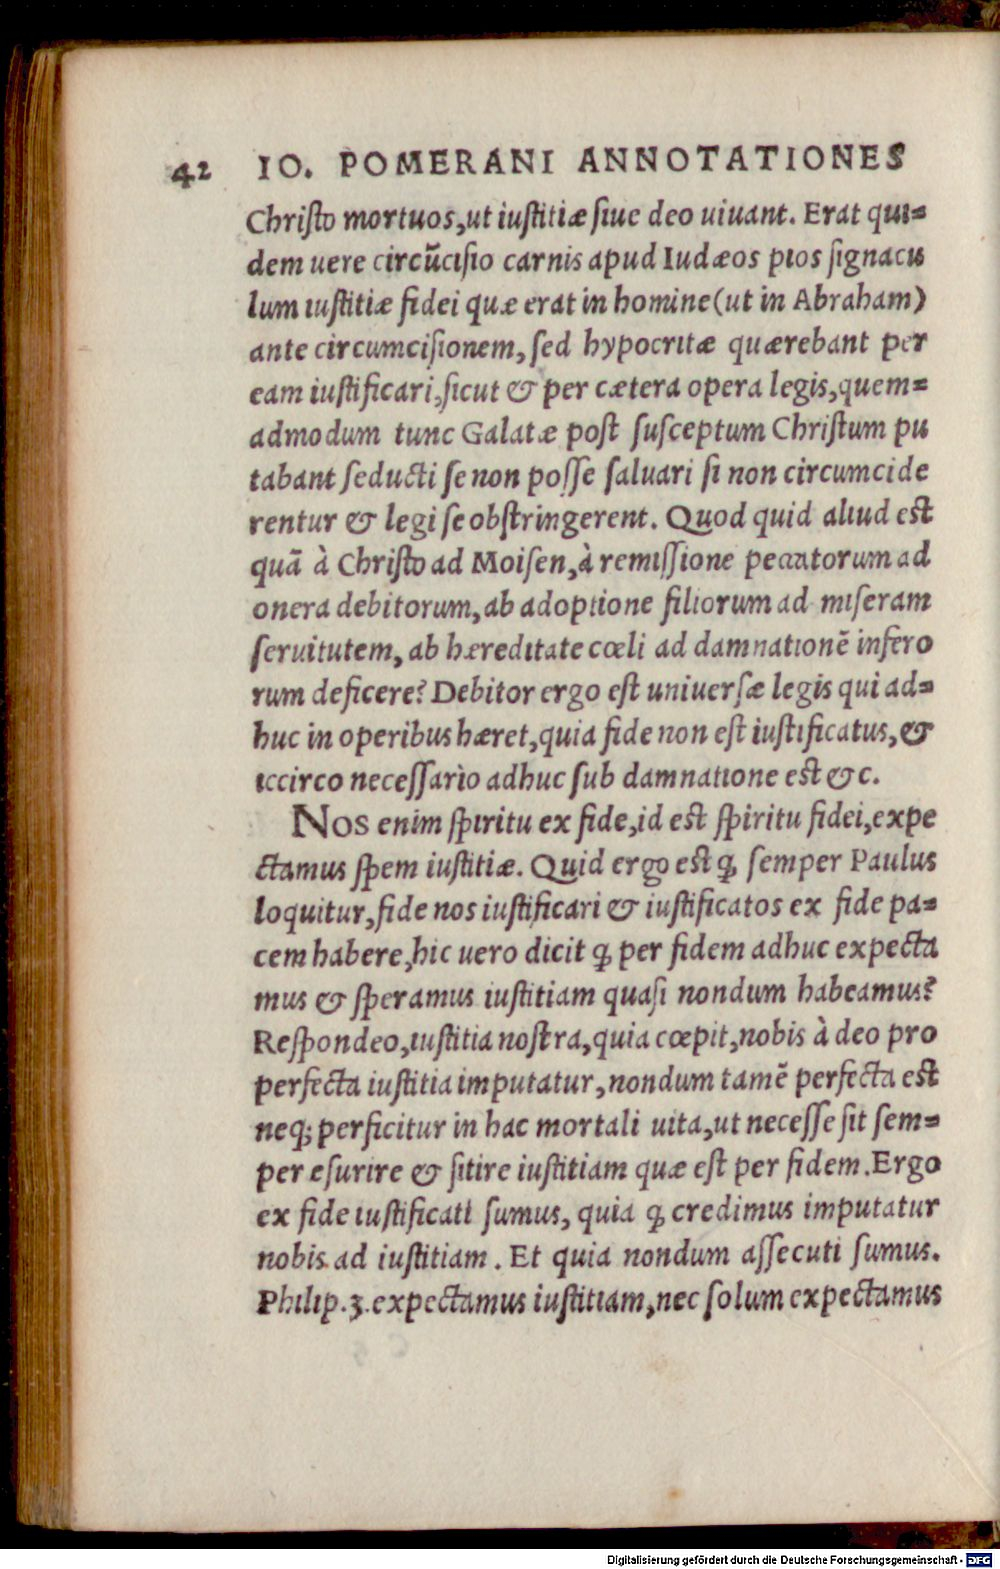 42 IO. POMERANI ANNOTATIONES
Christo mortuos, ut iustitiæ siue deo uiuant. Erat qui=
dem uere circũcisio carnis apud Iudæos pios signacu
lum iustitiæ fidei quæ erat in homine (ut in Abraham)
ante circumcisionem, sed hypocritæ quærebant per
eam iustificari, sicut & per cætera opera legis, quem=
admodum tunc Galatæ post susceptum Christum pu
tabant seducti se non posse saluari si non circumcide
rentur & legi se obstringerent. Quod quid aliud est
quã à Christo ad Moisen, à remissione peccatorum ad
onera debitorum, ab adoptione filiorum ad miseram
seruitutem, ab hæreditate cœli ad damnationẽ infero
rum deficere? Debitor ergo est uniuersæ legis qui ad=
huc in operibus hæret, quia fide non est iustificatus, &
iccirco necessariò adhuc sub damnatione est &c.
NOS enim spiritu ex fide, id est spiritu fidei, expe
ctamus spem iustitiæ. Quid ergo est ꝙ semper Paulus
loquitur, fide nos iustificari & iustificatos ex fide pa=
cem habere, hic uero dicit ꝙ per fidem adhuc expecta
mus & speramus iustitiam quasi nondum habeamus?
Respondeo, iustitia nostra, quia cœpit, nobis à deo pro
perfecta iustitia imputatur, nondum tamẽ perfecta est
neq; perficitur in hac mortali uita, ut necesse sit sem=
per esurire & sitire iustitiam quæ est per fidem. Ergo
ex fide iustificati sumus, quia ꝙ credimus imputatur
nobis ad iustitiam. Et quia nondum assecuti sumus.
Philip. 3. expectamus iustitiam, nec solum expectamus
Digitalisierung gefördert durch die Deutsche Forschungsgemeinschaft - DFG